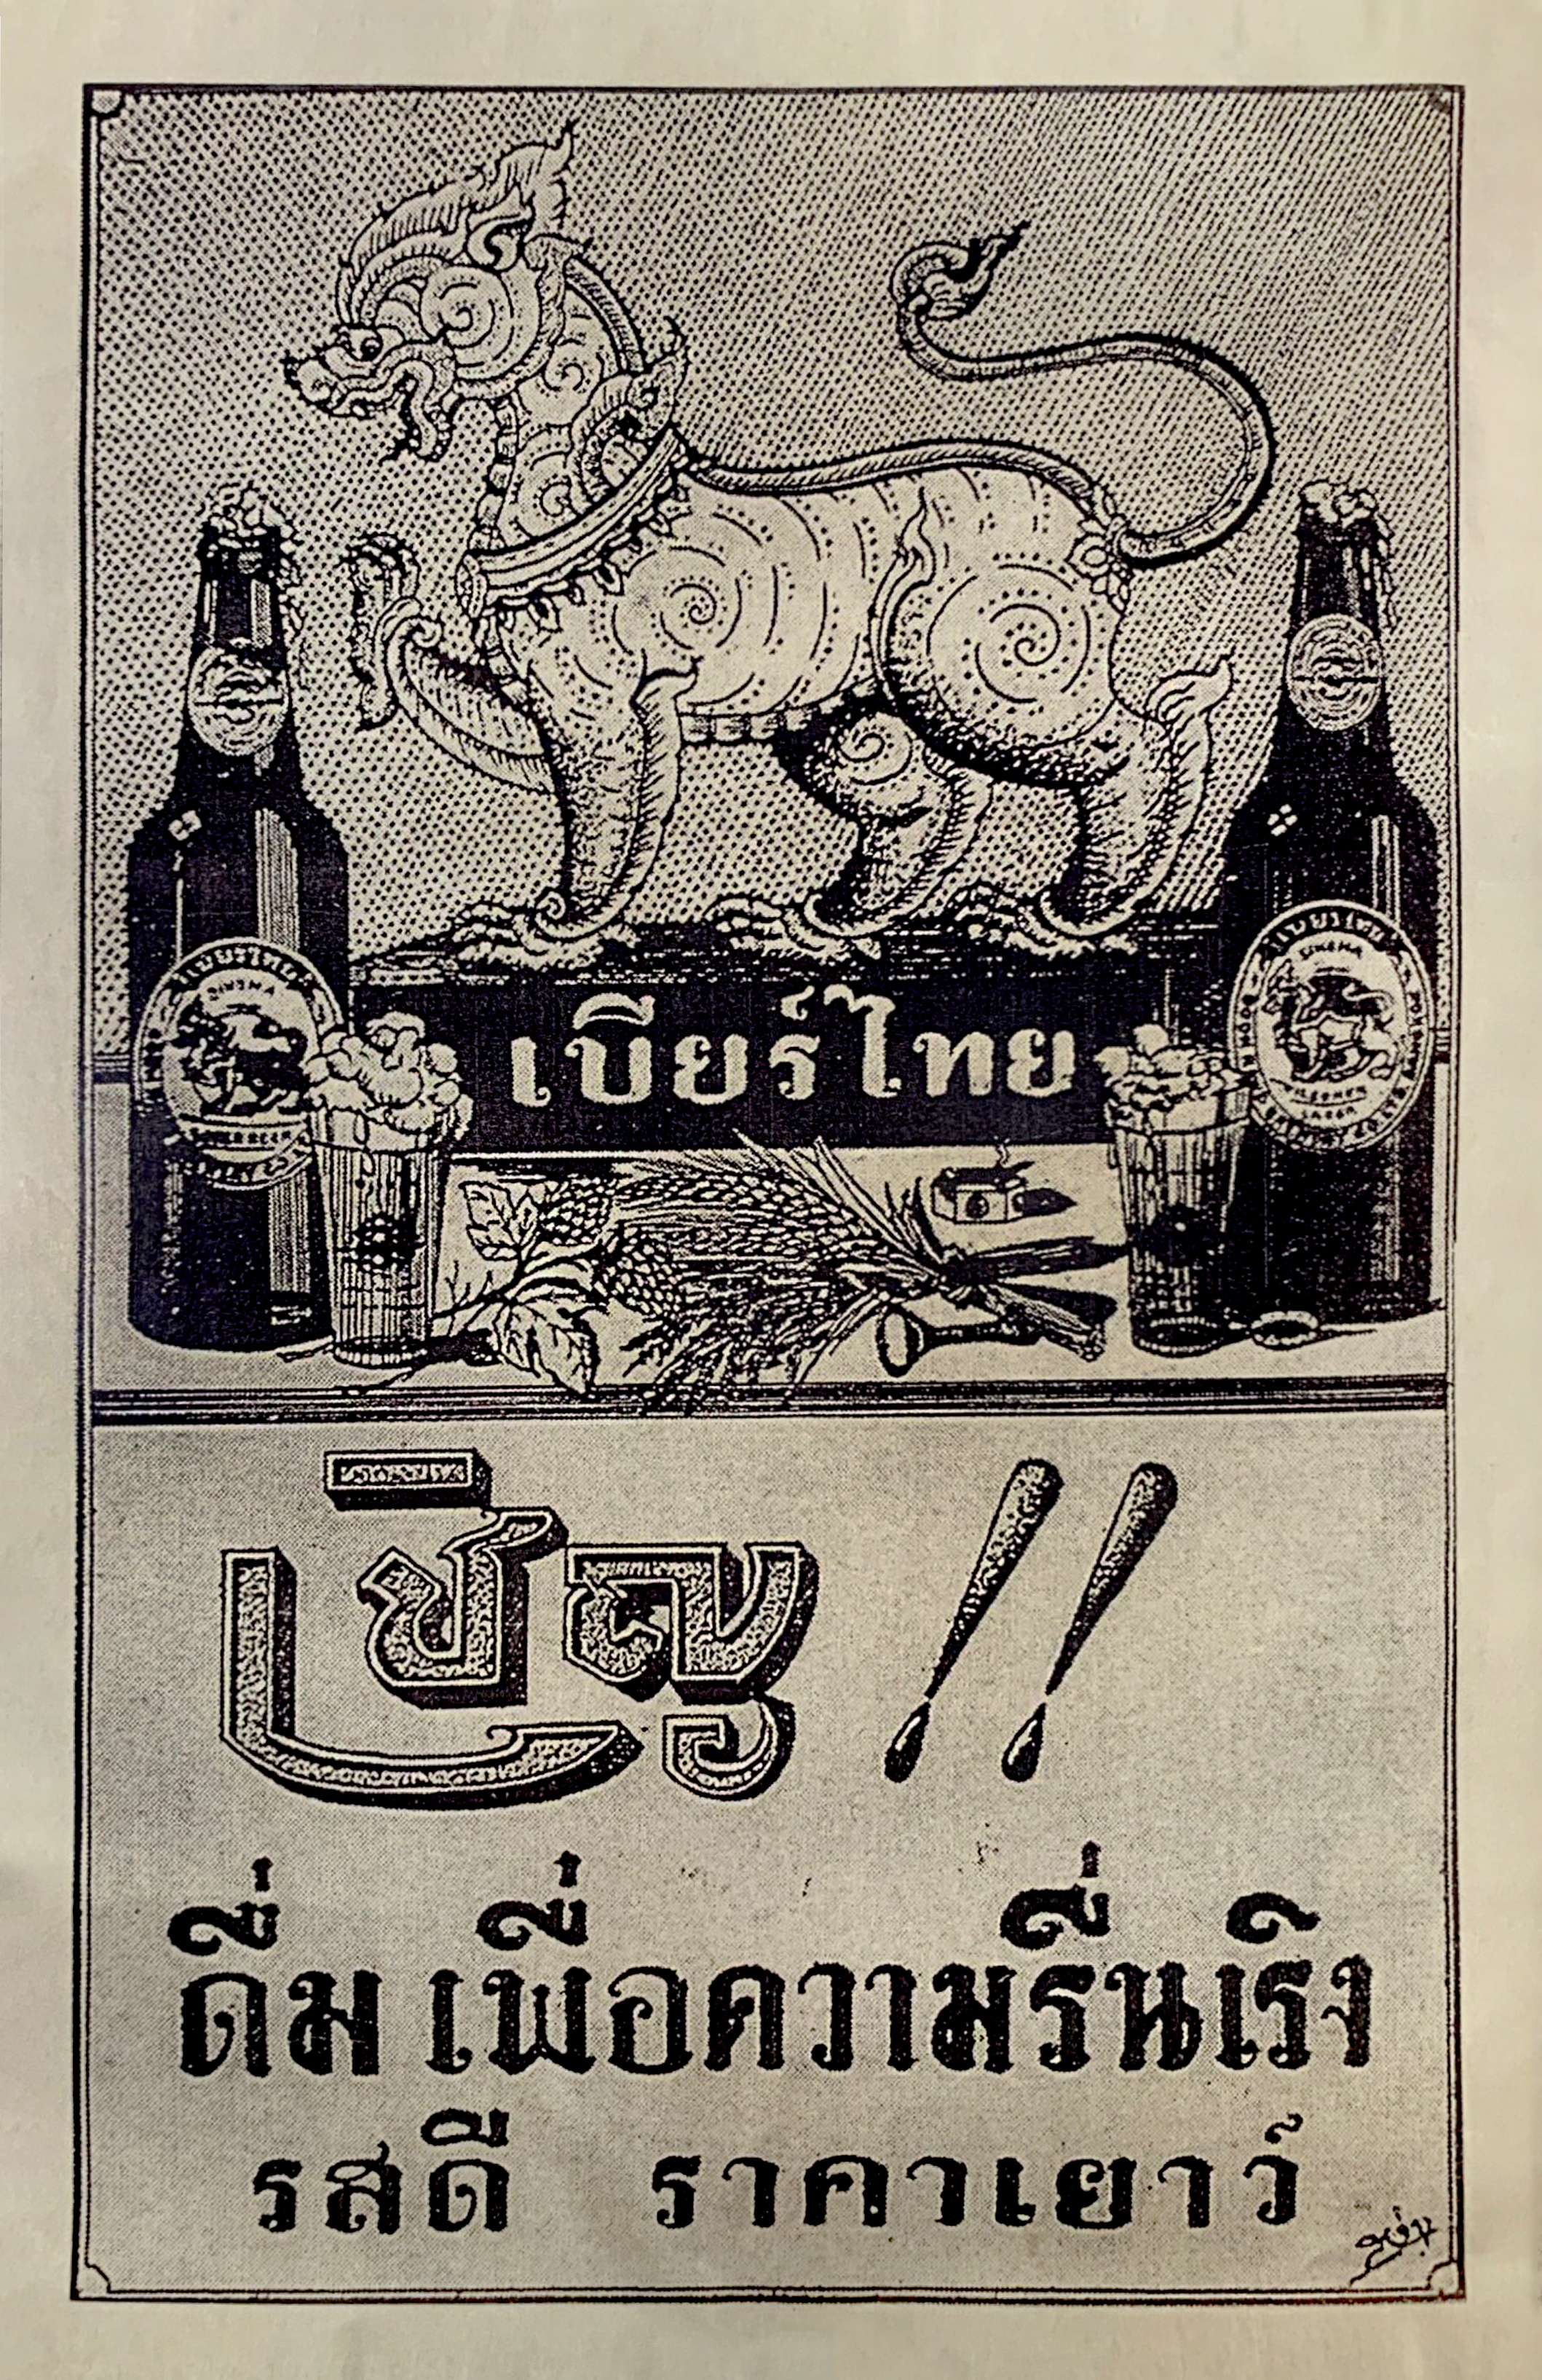 เบียร์ไทย
เชิญ !!
ดื่ม เพื่อความรื่นเริง
รสดี ราคาเยาว์